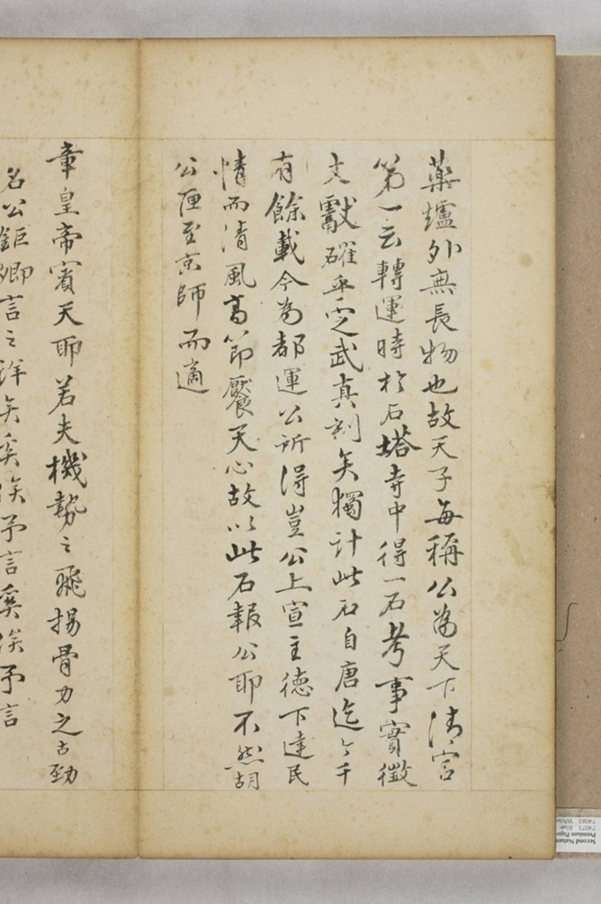 藥爐外無長物也故天子每稱公為天下清官
第一云轉運時於石塔寺中得一石考事實徵
文獻確乎定武真刻矣獨計此石自唐迄今千
有餘載今為都運公所得豈公上宣主德下達民
情而清風高節饜天心故以此石報公耶不然胡
公歷至京師而適
章皇帝賓天耶若夫機勢之飛揚骨力之古勁
名公鉅卿言之詳矣奚俟予言奚俟予言
Second Nature
Premium Pape
74075 Ivar
74085 White